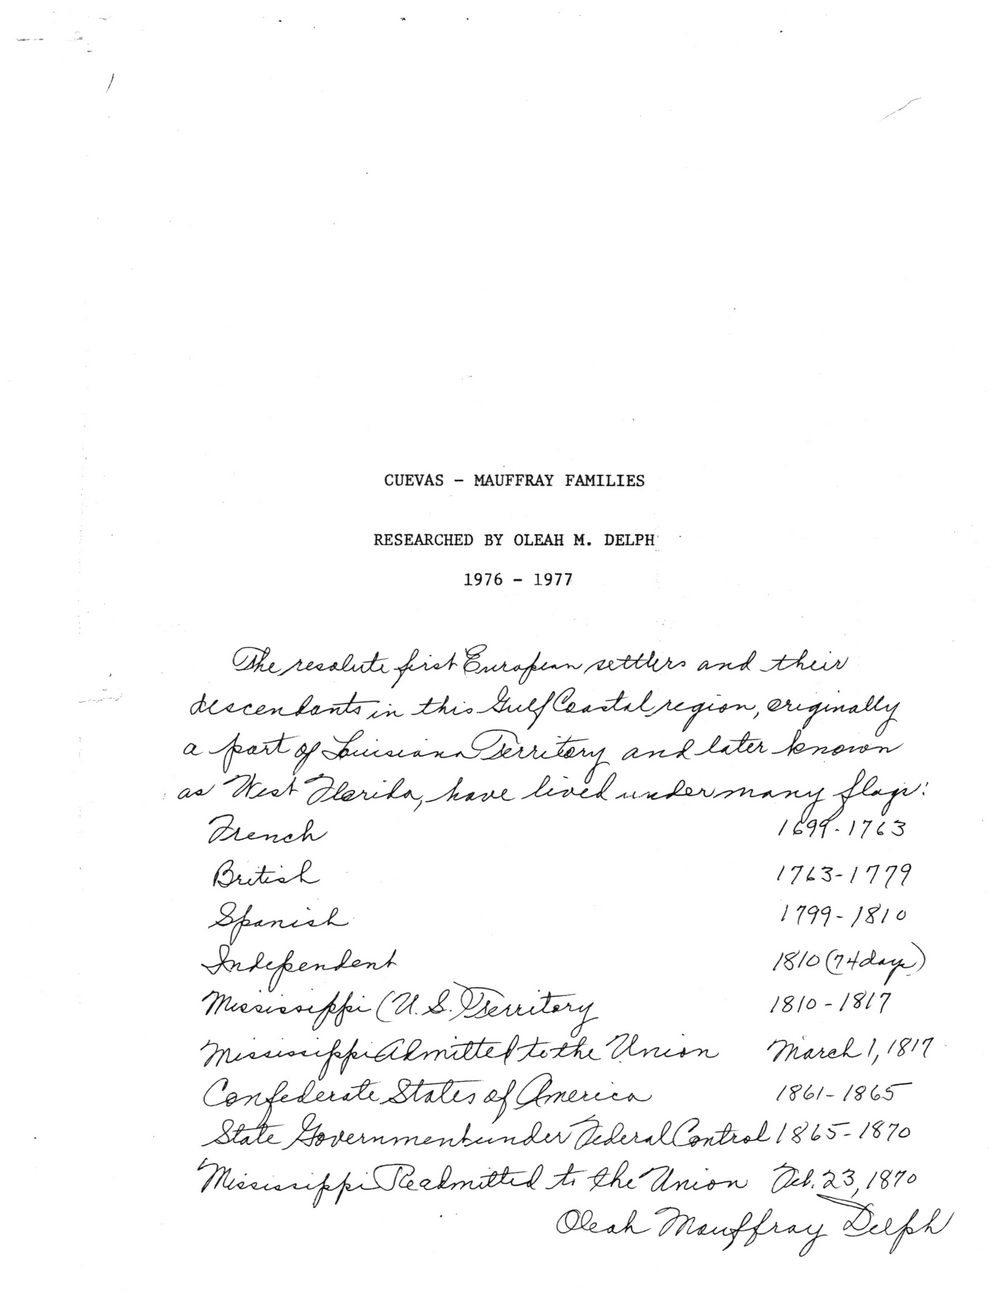 CUEVAS - MAUFFRAY FAMILIES
RESEARCHED BY OLEAH M. DELPH
1976 - 1977
The resolute first European settlers and their
descendants in this Gulf Coastal region, originally
a part of Louisiana Territory and later known
as West Florida, have lived under many flags:
French 1699-1763
British 1763-1779
Spanish 1799-1810
Independent 1810 (74 days)
Mississippi (U.S.) Territory 1810-1817
Mississippi Admitted to the Union March 1, 1817
Confederate States of America 1861-1865
State Government under Federal Control 1865-1870
Mississippi Readmitted to the Union Feb. 23, 1870
Oleah Mauffray Delph